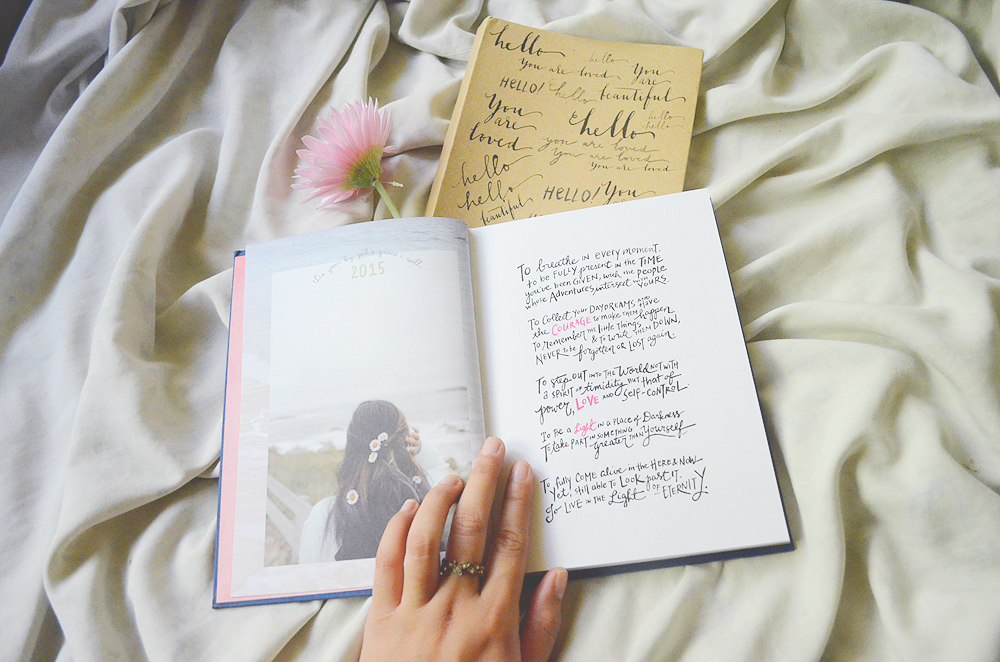 hello
hello
You are loved
You
are
HELLO!
hello
beautiful
You
are
loved
hello
hello
hello
you are loved
You are loved
You are loved
hello
hello
HELLO! You
beautiful
2015
To breathe IN every moment.
to be FULLY present IN the TIME
you've been GIVEN, with the people
whose Adventures intersect with YOURS
To Collect your DAYDREAMS, AND Have
the COURAGE to make them happen
to remember the little things,
& to write THEM DOWN,
NEVER to be forgotten OR LOST again.
To step OUT INTO THE World NOT WITH
a SPIRIT OF timidity BUT that of
power, LOVE AND SELF-CONTROL.
To Be a Light IN a place of Darkness
To take PART IN SOMETHING
greater THAN Yourself
To fully COME alive in the HERE & NOW
Yet, still able TO LOOK past IT.
To LIVE IN THE Light OF ETERNITY.